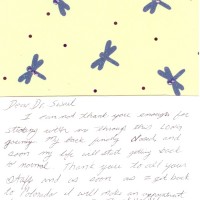 Dear Dr. Saied
I can not thank you enough for
working with me through this long
journey. My back finally healed and
soon my life will start getting back
to normal. Thank you to all your
staff and as soon as I get back
to I will make an appointment